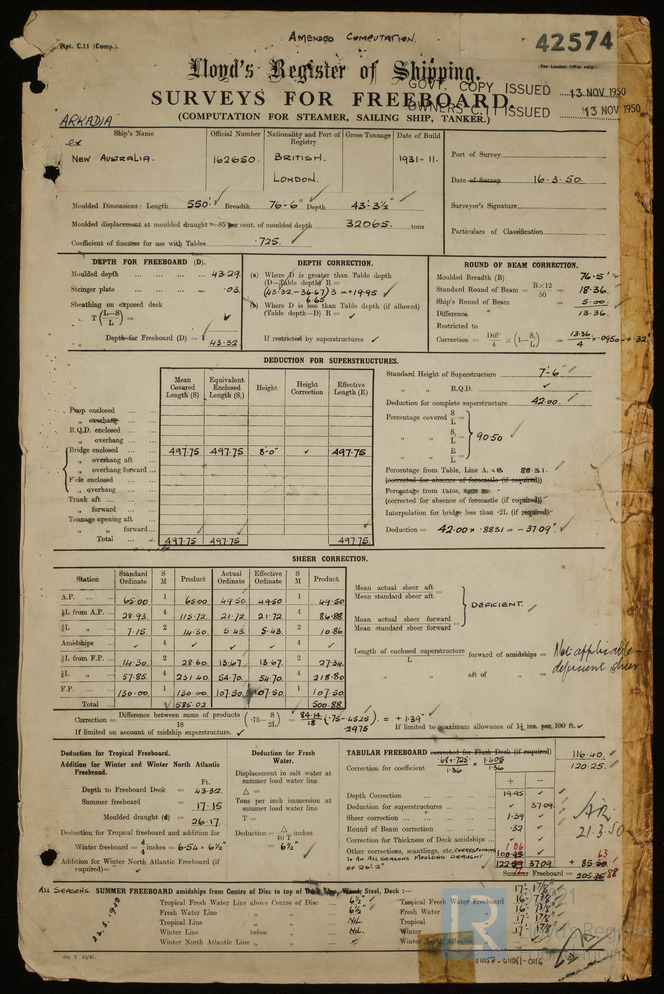 Rpt. C.11 (Comp.).
AMENDED COMPUTATION.
42574
(For London Office only)
Lloyd's Register of Shipping.
GOVT. COPY ISSUED 13 NOV 1950
SURVEYS FOR FREEBOARD.
OWNERS C.11 ISSUED 13 NOV 1950
(COMPUTATION FOR STEAMER, SAILING SHIP, TANKER.)
ARKADIA
Ship's Name Official Number Nationality and Port of Registry Gross Tonnage Date of Build
ex
NEW AUSTRALIA. 162650. BRITISH. LONDON. 1931-11.
Port of Survey
Date of Survey 16.3.50.
Surveyor's Signature
Particulars of Classification
Moulded Dimensions: Length 550' Breadth 76'-6" Depth 43'-3½"
Moulded displacement at moulded draught = 85 per cent. of moulded depth 32065. tons
Coefficient of fineness for use with Tables .725.
DEPTH FOR FREEBOARD (D).
Moulded depth 43.29
Stringer plate .03
Sheathing on exposed deck
T (L—S / L) =
Depth for Freeboard (D) = 43.32
DEPTH CORRECTION.
(a) Where D is greater than Table depth
(D—Table depth) R =
(43.32 - 36.67) 3 = +19.95
6.65
(b) Where D is less than Table depth (if allowed)
(Table depth—D) R =
If restricted by superstructures
ROUND OF BEAM CORRECTION.
Moulded Breadth (B) 76.5'
Standard Round of Beam = B×12 / 50 = 18.36.
Ship's Round of Beam = 5.00
Difference 13.36.
Restricted to
Correction = Diff / 4 × (1 — S₁ / L) = 13.36 / 4 × .0950 = +.32
DEDUCTION FOR SUPERSTRUCTURES.
Mean Covered Length (S) Equivalent Enclosed Length (S₁) Height Height Correction Effective Length (E)
Poop enclosed
„ overhang
R.Q.D. enclosed
„ overhang
Bridge enclosed 497.75 497.75 8'-0" 497.75
„ overhang aft
„ overhang forward
F'cle enclosed
„ overhang
Trunk aft
„ forward
Tonnage opening aft
„ „ forward
Total 497.75 497.75 497.75
Standard Height of Superstructure 7'-6"
„ „ R.Q.D.
Deduction for complete superstructure 42.00.
Percentage covered S / L =
„ „ S₁ / L = 90.50
„ „ E / L =
Percentage from Table, Line A. 88.31.
(corrected for absence of forecastle (if required))
Percentage from Table,
(corrected for absence of forecastle (if required))
Interpolation for bridge less than .2L (if required)
Deduction = 42.00 × .8831 = - 37.09"
SHEER CORRECTION.
Station Standard Ordinate S M Product Actual Ordinate Effective Ordinate S M Product
A.P. 65.00 1 65.00 49.50 49.50 1 49.50
⅙L from A.P. 28.93 4 115.72 21.72 21.72 4 86.88
⅓L „ 7.15 2 14.30 5.43 5.43 2 10.86
Amidships 4 4
⅓L from F.P. 14.30 2 28.60 13.67 13.67 2 27.34
⅙L „ 57.85 4 231.40 54.70 54.70 4 218.80
F.P. 130.00 1 130.00 107.50 107.50 1 107.50
Total 585.02 500.88
Mean actual sheer aft
Mean standard sheer aft =
Mean actual sheer forward
Mean standard sheer forward =
DEFICIENT.
Length of enclosed superstructure / L forward of amidships =
„ „ aft of „ =
Not applicable deficient sheer
Correction = Difference between sums of products / 18 (.75 — S / 2L) = 84.14 / 18 (.75-.4525) .2975 = + 1.39"
If limited on account of midship superstructure.
If limited to maximum allowance of 1½ ins. per 100 ft.
Deduction for Tropical Freeboard.
Addition for Winter and Winter North Atlantic Freeboard.
Ft.
Depth to Freeboard Deck = 43.32
Summer freeboard = 17.15
Moulded draught (d) = 26.17.
Deduction for Tropical freeboard and addition for
Winter freeboard = d / 4 inches = 6.54 = 6½"
Addition for Winter North Atlantic Freeboard (if required) =
Deduction for Fresh Water.
Displacement in salt water at summer load water line
△ =
Tons per inch immersion at summer load water line
T =
Deduction = △ / 40 T inches
= 6½"
TABULAR FREEBOARD corrected for Flush Deck (if required) 116.40.
Correction for coefficient .68+.725 / 1.36 = 1.405 / 1.36 120.25.
+ —
Depth Correction 19.95
Deduction for superstructures 37.09
Sheer correction 1.39
Round of Beam correction .32
Correction for Thickness of Deck amidships
Other corrections, scantlings, etc. CORRESPONDING TO AN ALL SEASONS MOULDED DRAUGHT OF 26'-2"
37.09
Summer Freeboard =
21.3.50
ALL SEASONS. SUMMER FREEBOARD amidships from Centre of Disc to top of Deck Line, Wood, Steel, Deck :—
22.3.1950
Tropical Fresh Water Line above Centre of Disc 6½"
Fresh Water Line „ „ 6½"
Tropical Line „ „ NIL
Winter Line below „ NIL.
Winter North Atlantic Line „ „
Tropical Fresh Water Freeboard
Fresh Water „
Tropical „
Winter „
Winter North Atlantic „